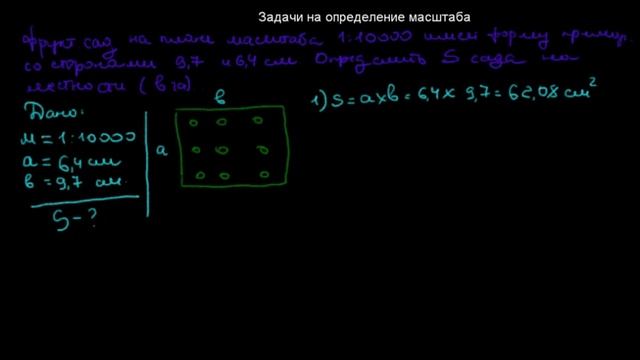 Задачи на определение масштаба
фрукт сад на плане масштаба 1:10000 имеет форму прямоуг.
со сторонами 9,7 и 6,4 см Определить S сада на
местности (в га)
Дано:
М = 1:10000
а = 6,4 см
в = 9,7 см
S - ?
в
а
1) S = a x в = 6,4 x 9,7 = 62,08 см²